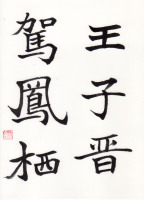 王子晋
駕鳳栖